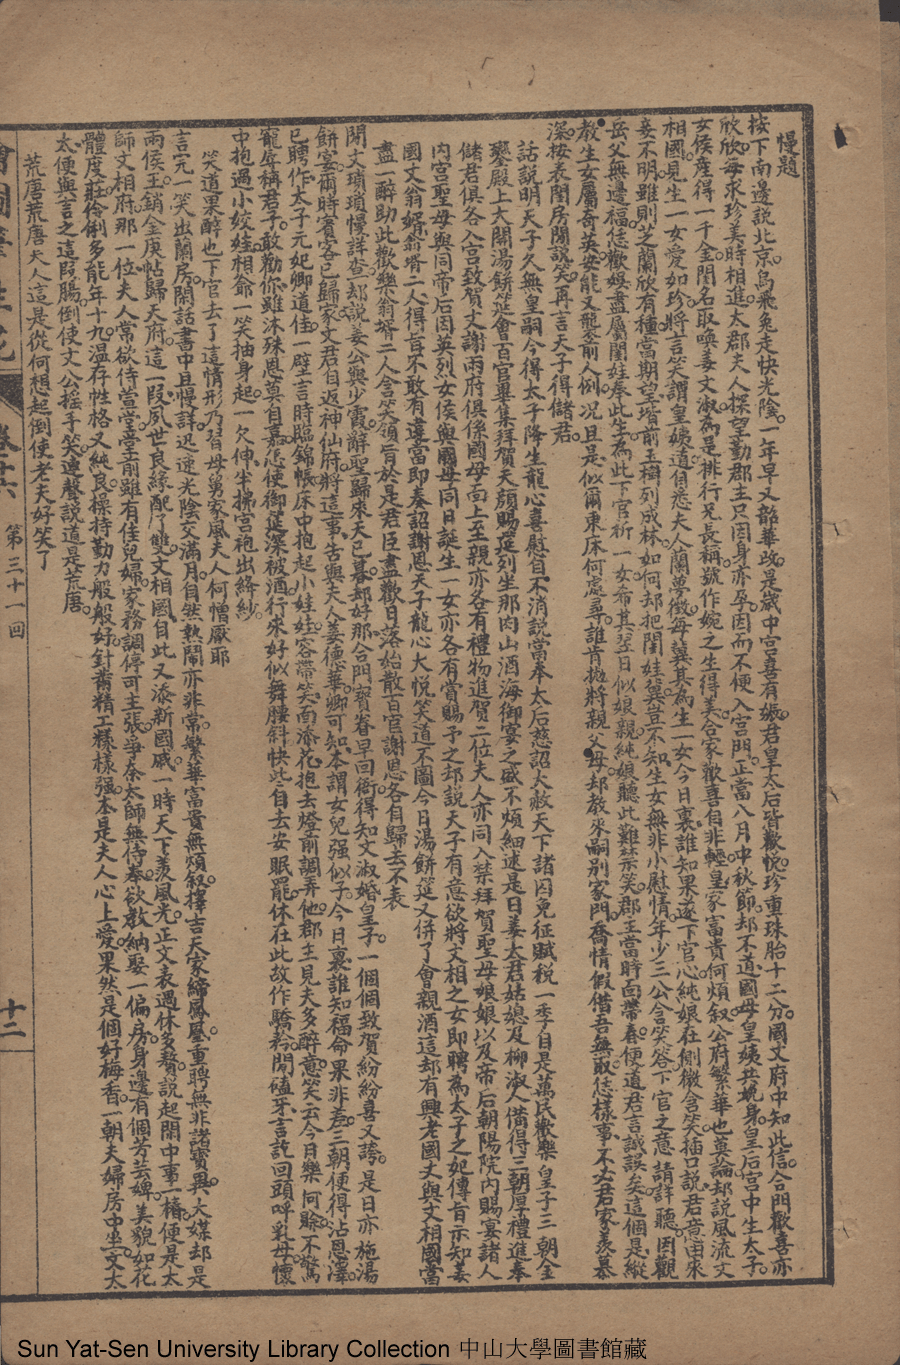 慢題
按下南邊說北京。烏飛兔走快光陰。一年早又韶華改。是歲中宮喜有娠。君皇太后皆歡悅。珍重珠胎十二分。國丈府中知此信。合門歡喜亦
欣欣。每求珍美時相進。太郡夫人探望勤。郡主只因身亦孕。因而不便入宮門。正當八月中秋節。却不道國母皇姨共娩身。皇后宮中生太子。
女侯產得一千金。閨名取喚姜文淑。為是排行兄長稱。號作婉之生得美。合家歡喜自非輕。皇家富貴何煩叙。公府繁華也莫論。却說風流文
相國。見生一女愛如珍。將言笑謂皇姨道。自悉夫人蘭夢徵。每冀其為生一女。今日裏誰知果遂下官心。純娘在側微含笑。插口說君意由來
妾不明。雖則芝蘭欣有種。當期望堦前玉樹列成林。如何却把閨娃冀。豈不知生女無非小慰情。年少三公含笑答。下官之意請詳聽。因觀
岳父無邊福。恁歡娛盡屬閨娃奉此生。為此下官祈一女。希其翌日似娘親。純娘聽此難禁笑。郡主當時面帶春。便道君言誠誤矣。這個是縱
教生女屬奇英。安能又襲前人例。况且是似爾東床何處尋。誰肯拋將親父母。却教來嗣別家門。喬情假借吾無取。恁樣事不必君家羨慕
深。按表閨房閒說笑。再言天子得儲君。
話說明天子久無皇嗣今得太子降生龍心喜慰自不消說當奉太后慈詔大赦天下諸囚免征賦稅一季自是萬民歡樂皇子三朝金
鑾殿上大開湯餅筵會百官畢集拜賀天顏賜筵列坐那肉山酒海御宴之盛不煩細述是日姜太君姑媳及柳淑人備得三朝厚禮進奉
儲君俱各入宮致賀文謝兩府俱係國母而上至親亦各有禮物進賀二位夫人亦同入禁拜賀聖母娘娘以及帝后朝陽院內賜宴諸人
內宮聖母與同帝后因英烈女侯與國母同日誕生一女亦各有賞賜予之却說天子有意欲將文相之女即聘為太子之妃傳旨示知姜
國丈翁婿翁壻二人得旨不敢有違當即奏詔謝恩天子龍心大悅笑道不圖今日湯餅筵又併了會親酒這却有興老國丈與文相國當
盡一醉助此歡樂翁壻二人含笑領旨於是君臣盡歡日落始散百官謝恩各自歸去不表
閒文瑣瑣慢詳查。却說姜公與少霞。辭聖歸來天已暮。却好那合門寶眷早回衙。得知文淑婚皇子。一個個致賀紛紛喜又誇。是日亦施湯
餅宴。爾時賓客已歸家。文君自返神仙府。將這事告與夫人姜德華。卿可知本謂女兒强似子。今日裏誰知福命果非差。三朝便得沾恩澤。
已聘作太子元妃卿道佳。一壁言時臨錦帳。床中抱起小娃娃。容帶笑。面添花。抱去燈前調弄他。郡主見夫多醉意。笑云今日樂何賒。不驚
寵辱稱君子。敢勸你雖沐殊恩莫自嘉。怎使御筵深被酒。行來好似舞腰斜。快些自去安眠罷。休在此故作驕矜閒磕牙。言訖回頭呼乳母。懷
中抱過小姣娃。相爺一笑抽身起。一欠伸半拂宮袍出絳紗。
笑道果醉也下官去了這情形乃習母舅家風夫人何憎厭耶
言完一笑出蘭房。閒話書中且慢詳。迅速光陰交滿月。自然熱鬧亦非常。繁華富貴無煩叙。擇吉天家締鳳凰。重聘無非諸寶異。大媒却是
兩侯王。銷金庚帖歸天府。這一段夙世良緣配了雙。文相國自此又添新國戚。一時天下羨風光。正文表過休多贅。說起閒中事一樁。便是太
師文相府。那一位夫人常欲侍萱堂。堂前雖有佳兒婦。家務調停可主張。爭奈太師無侍奉。欲教納娶一偏房。身邊有個芳芸婢。美貌如花
體度莊。伶俐多能年十九。溫存性格又純良。操持勤力般般好。針黹精工樣樣强。本是夫人心上愛。果然是個好梅香。一朝夫婦房中坐。文太
太便與言之這段腸。倒使文公搖手笑。連聲說道是荒唐。
荒唐荒唐夫人這是從何想起倒使老夫好笑了
卷十六 第三十一回 十二
Sun Yat-Sen University Library Collection 中山大學圖書館藏